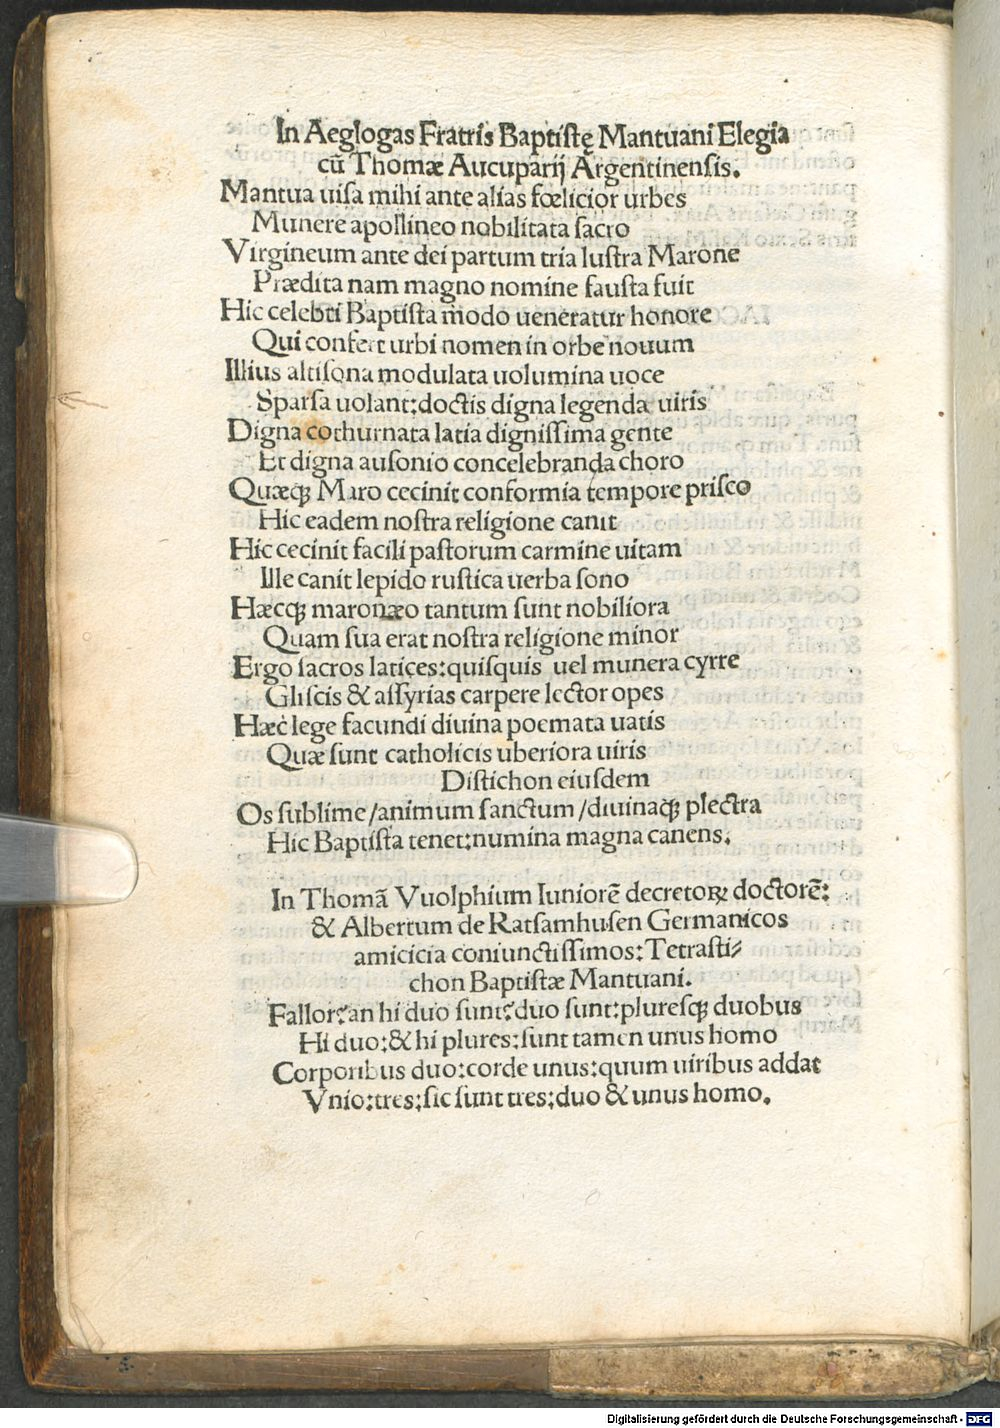 In Aeglogas Fratris Baptistę Mantuani Elegia
cũ Thomæ Aucuparij Argentinensis.
Mantua uisa mihi ante alias fœlicior urbes
Munere apollineo nobilitata sacro
Virgineum ante dei partum tria lustra Marone
Prædita nam magno nomine fausta fuit
Hic celebri Baptista modo ueneratur honore
Qui confert urbi nomen in orbe nouum
Illius altisona modulata uolumina uoce
Sparsa uolant:doctis digna legenda uiris
Digna cothurnata latia dignissima gente
Et digna ausonio concelebranda choro
Quæcꝙ Maro cecinit conformia tempore prisco
Hic eadem nostra religione canit
Hic cecinit facili pastorum carmine uitam
Ille canit lepido rustica uerba sono
Hæcꝙ maronæo tantum sunt nobiliora
Quam sua erat nostra religione minor
Ergo sacros latices:quisquis uel munera cyrre
Gliscis & assyrias carpere lector opes
Hæc lege facundi diuina poemata uatis
Quæ sunt catholicis uberiora uiris
Distichon eiusdem
Os sublime/animum sanctum/diuinacꝙ plectra
Hic Baptista tenet:numina magna canens.
In Thomã Vuolphium Iuniorẽ decretoꝝ doctorẽ:
& Albertum de Ratsamhusen Germanicos
amicicia coniunctissimos:Tetrasti⸗
chon Baptistæ Mantuani.
Fallor?an hi duo sunt?duo sunt:pluresꝙ duobus
Hi duo:& hi plures:sunt tamen unus homo
Corporibus duo:corde unus:quum uiribus addat
Vnio:tres:sic sunt tres:duo & unus homo.
Digitalisierung gefördert durch die Deutsche Forschungsgemeinschaft - DFG